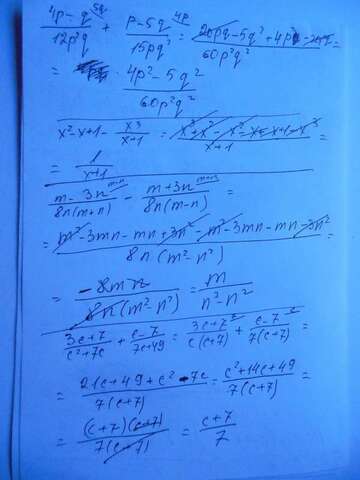 4p - q^5q / 12p²q + p - 5q^4p / 15pq² = 20pq - 5q² + 4p² - 20pq / 60p²q² =
= 4p² - 5q² / 60p²q²
x² - x + 1 - x³ / x+1 = x³ + x² - x² - x + x + 1 - x³ / x+1 =
= 1 / x+1
m - 3n^m-n / 8n(m+n) - m + 3n^m+n / 8n(m-n) =
= m² - 3mn - mn + 3n² - m² - 3mn - mn - 3n² / 8n(m² - n²) =
= -8mn / 8n(m² - n²) = m / n² - n²
3c+7 / c² + 7c + c-7 / 7c+49 = 3c+7 / c(c+7) + c-7 / 7(c+7) =
= 21c + 49 + c² - 7c / 7(c+7) = c² + 14c + 49 / 7(c+7) =
= (c+7)(c+7) / 7(c+7) = c+7 / 7